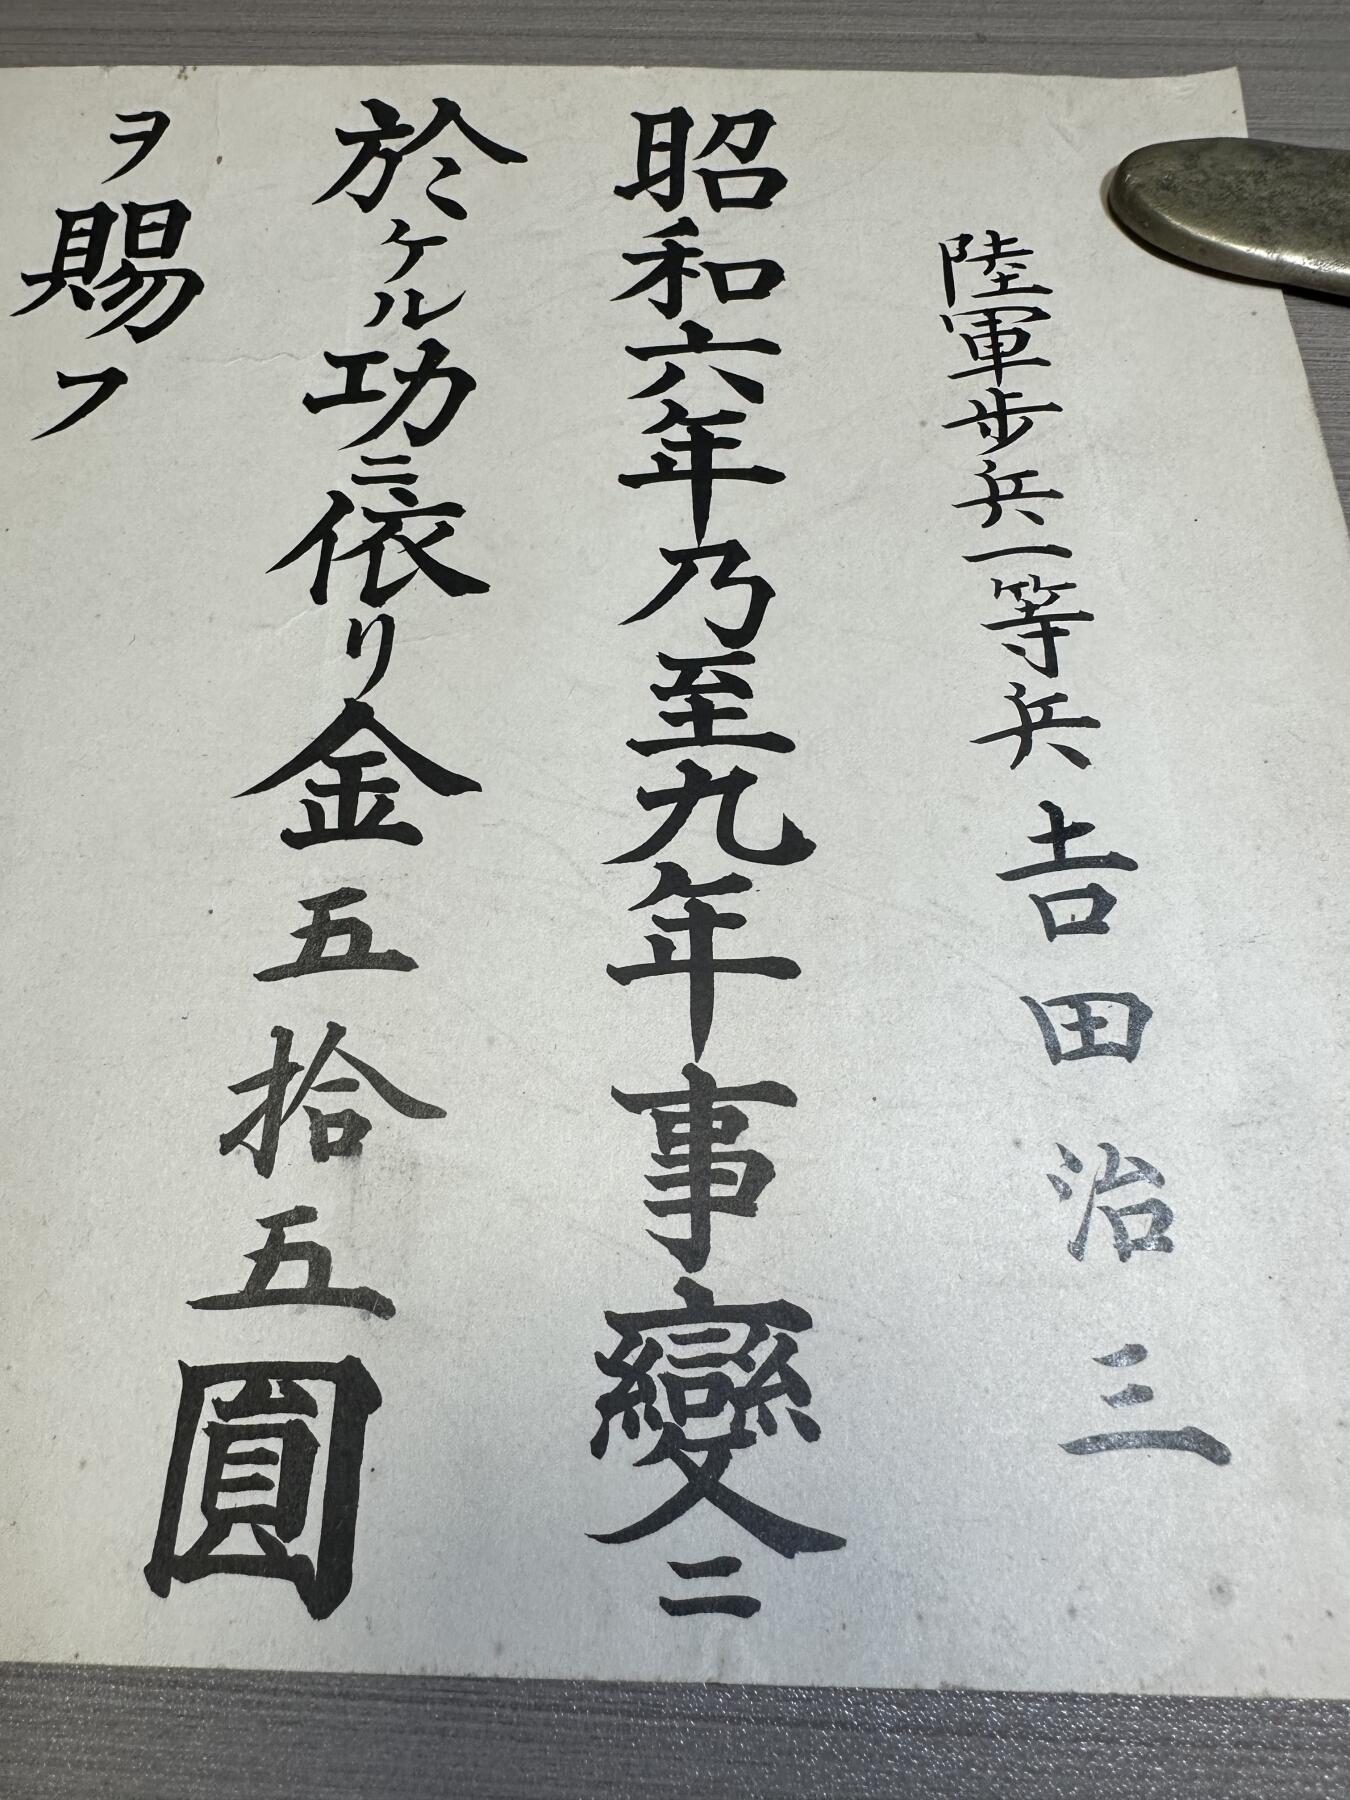 陸軍歩兵一等兵𠮷田治三
昭和六年乃至九年事變ニ
於ケル功ニ依リ金五拾五圓
ヲ賜フ